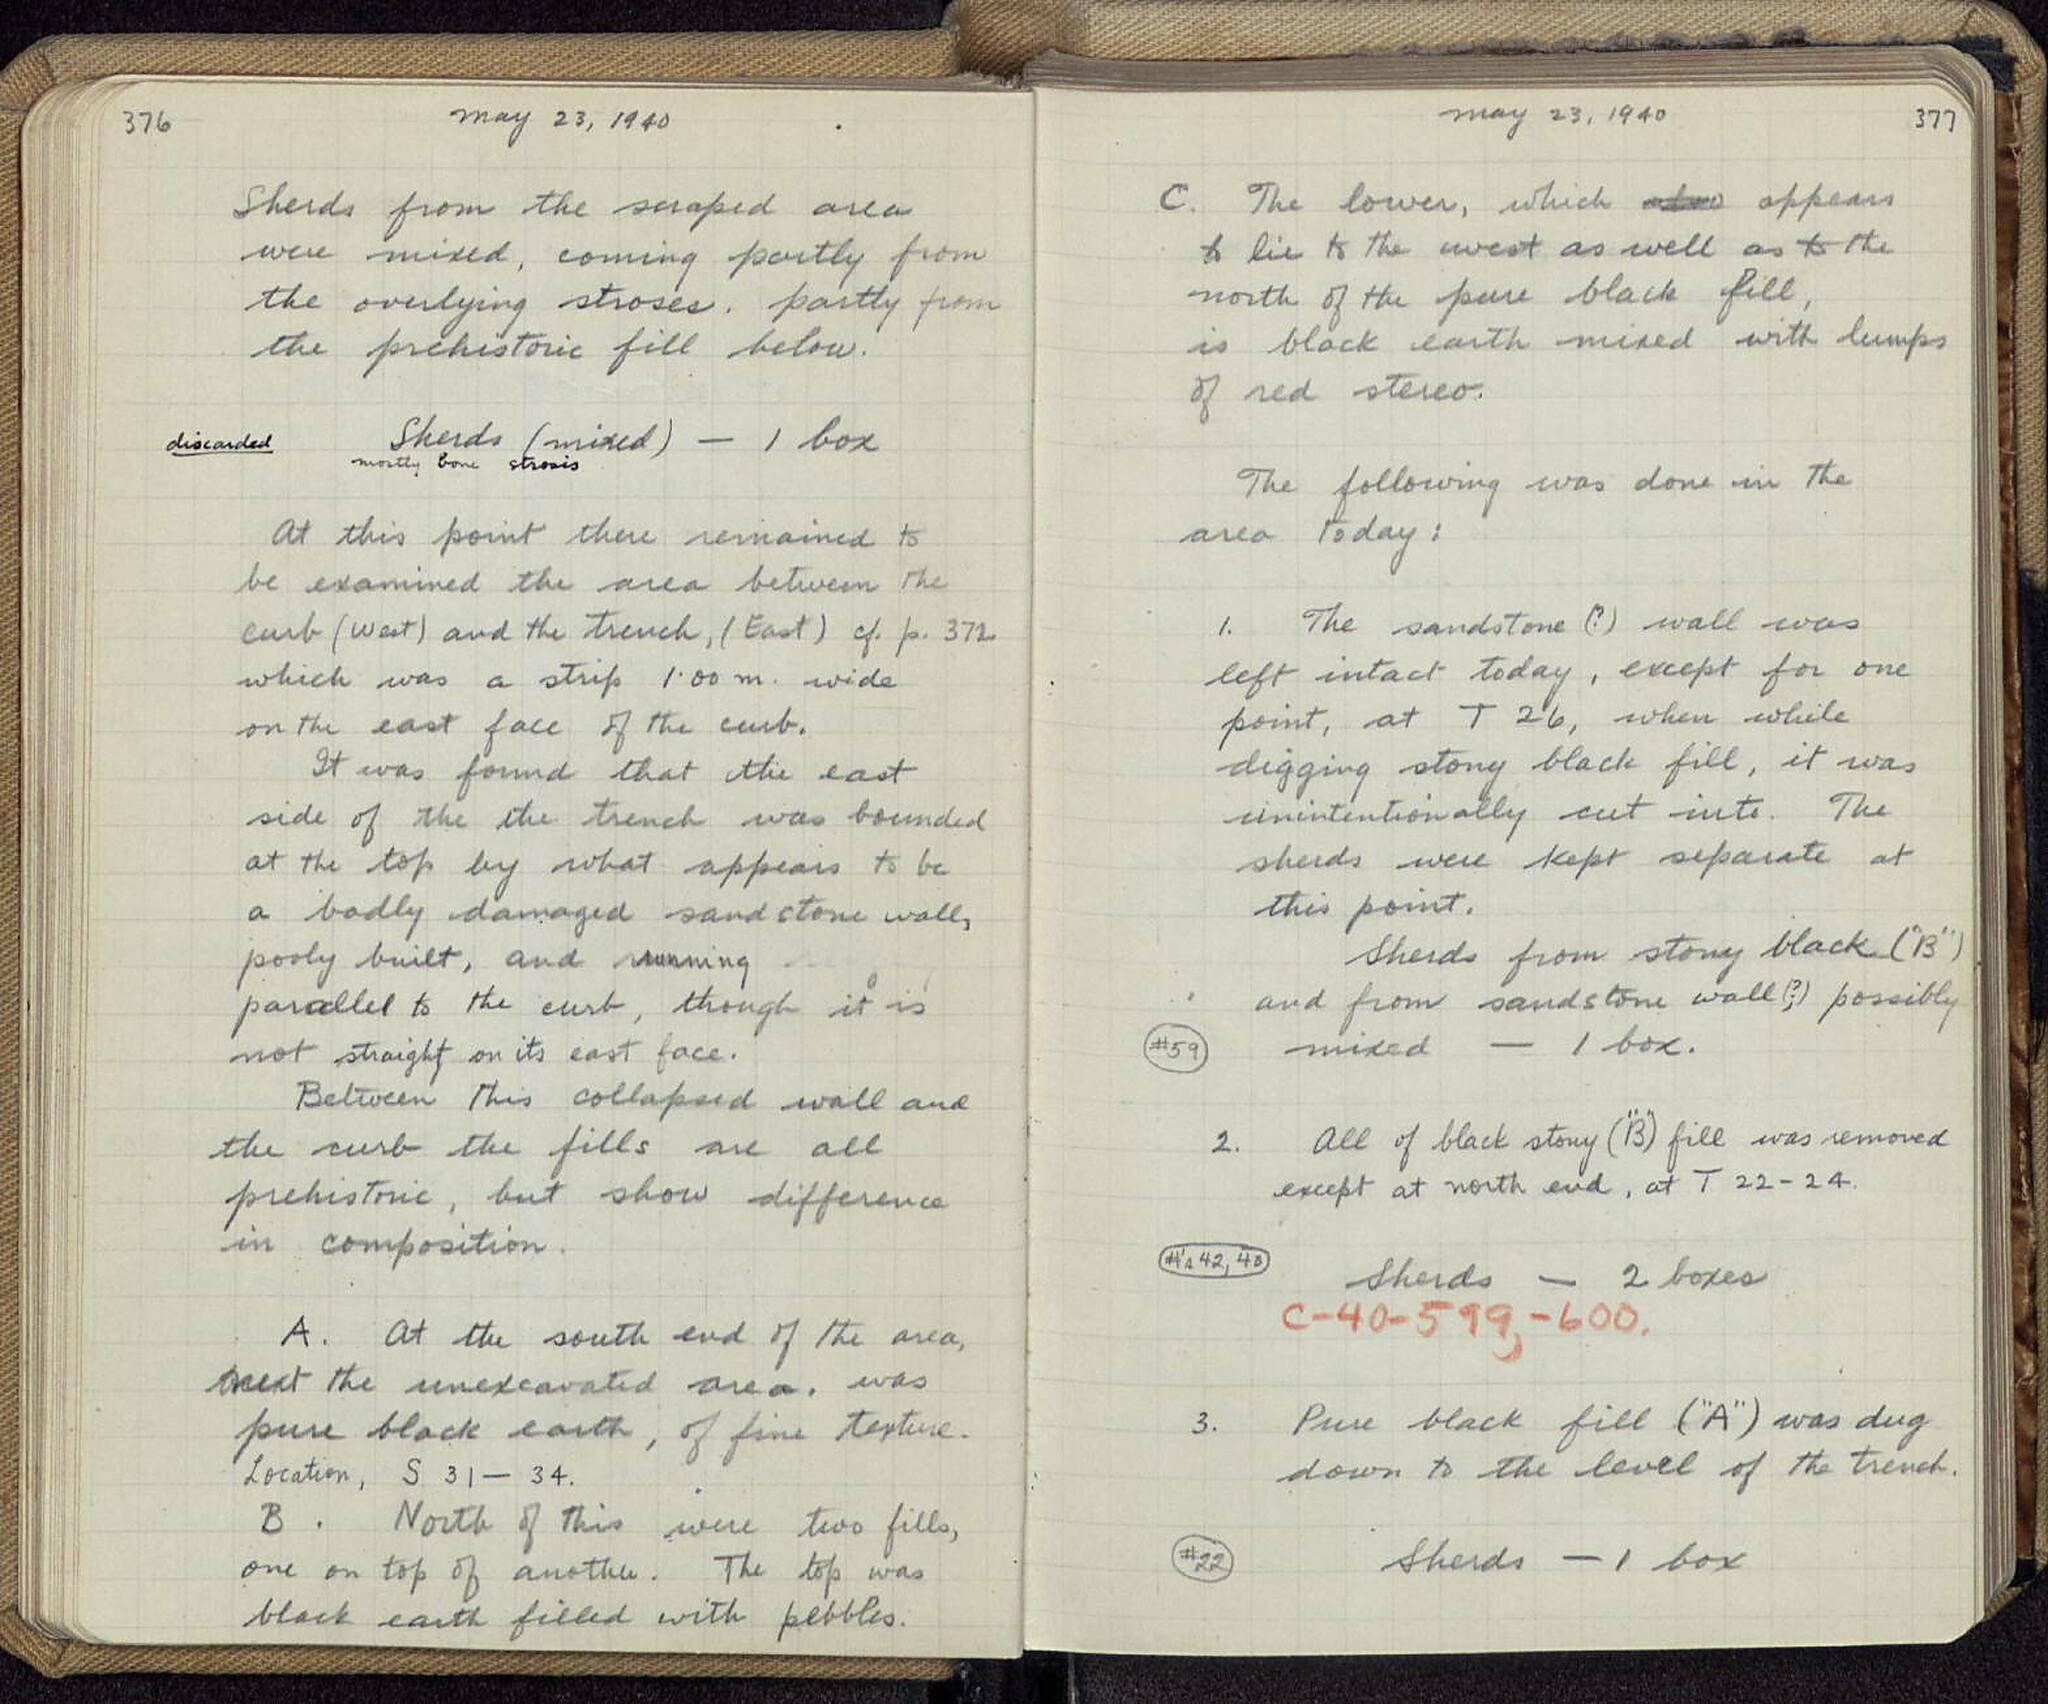 376
May 23, 1940
Sherds from the scraped area
were mixed, coming partly from
the overlying stroses, partly from
the prehistoric fill below.
discarded
Sherds (mixed) — 1 box
mostly bone strosis
At this point there remained to
be examined the area between the
curb (West) and the trench, (East) cf. p. 372
which was a strip 1.00 m. wide
on the east face of the curb.
It was found that the east
side of the the trench was bounded
at the top by what appears to be
a badly damaged sandstone wall,
pooly built, and running
parallel to the curb, though it is
not straight on its east face.
Between this collapsed wall and
the curb the fills are all
prehistoric, but show difference
in composition.
A. At the south end of the area,
next the unexcavated area, was
pure black earth, of fine texture.
Location, S 31 — 34.
B. North of this were two fills,
one on top of another. The top was
black earth filled with pebbles.
May 23, 1940
377
C. The lower, which also appears
to lie to the west as well as to the
north of the pure black fill,
is black earth mixed with lumps
of red stereo.
The following was done in the
area today:
1. The sandstone (?) wall was
left intact today, except for one
point, at T 26, when while
digging stony black fill, it was
unintentionally cut into. The
sherds were kept separate at
this point.
Sherds from stony black ("B")
and from sandstone wall (?) possibly
#59 mixed — 1 box.
2. All of black stony ("B") fill was removed
except at north end, at T 22-24.
#'s 42, 40
Sherds — 2 boxes
C-40-599, -600.
3. Pure black fill ("A") was dug
down to the level of the trench.
#22 Sherds — 1 box